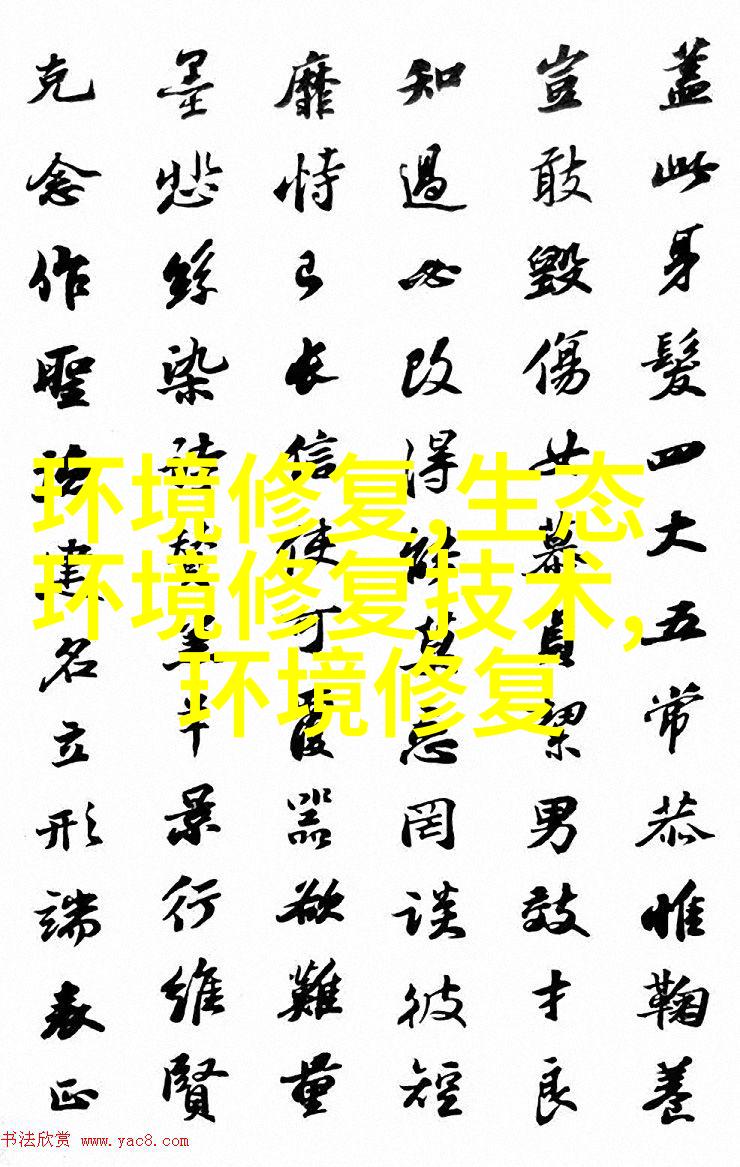 蓋此身髮四大五常恭惟鞠養
豈敢毀傷女慕貞絜男效才良
知過必改得能莫忘罔談彼短
靡恃己長信使可覆器欲難量
墨悲絲染詩讚羔羊景行維賢
克念作聖德建名立形端表正
环境修复,生态
环境修复技术,
环境修复
书法欣赏 www.yac8.com